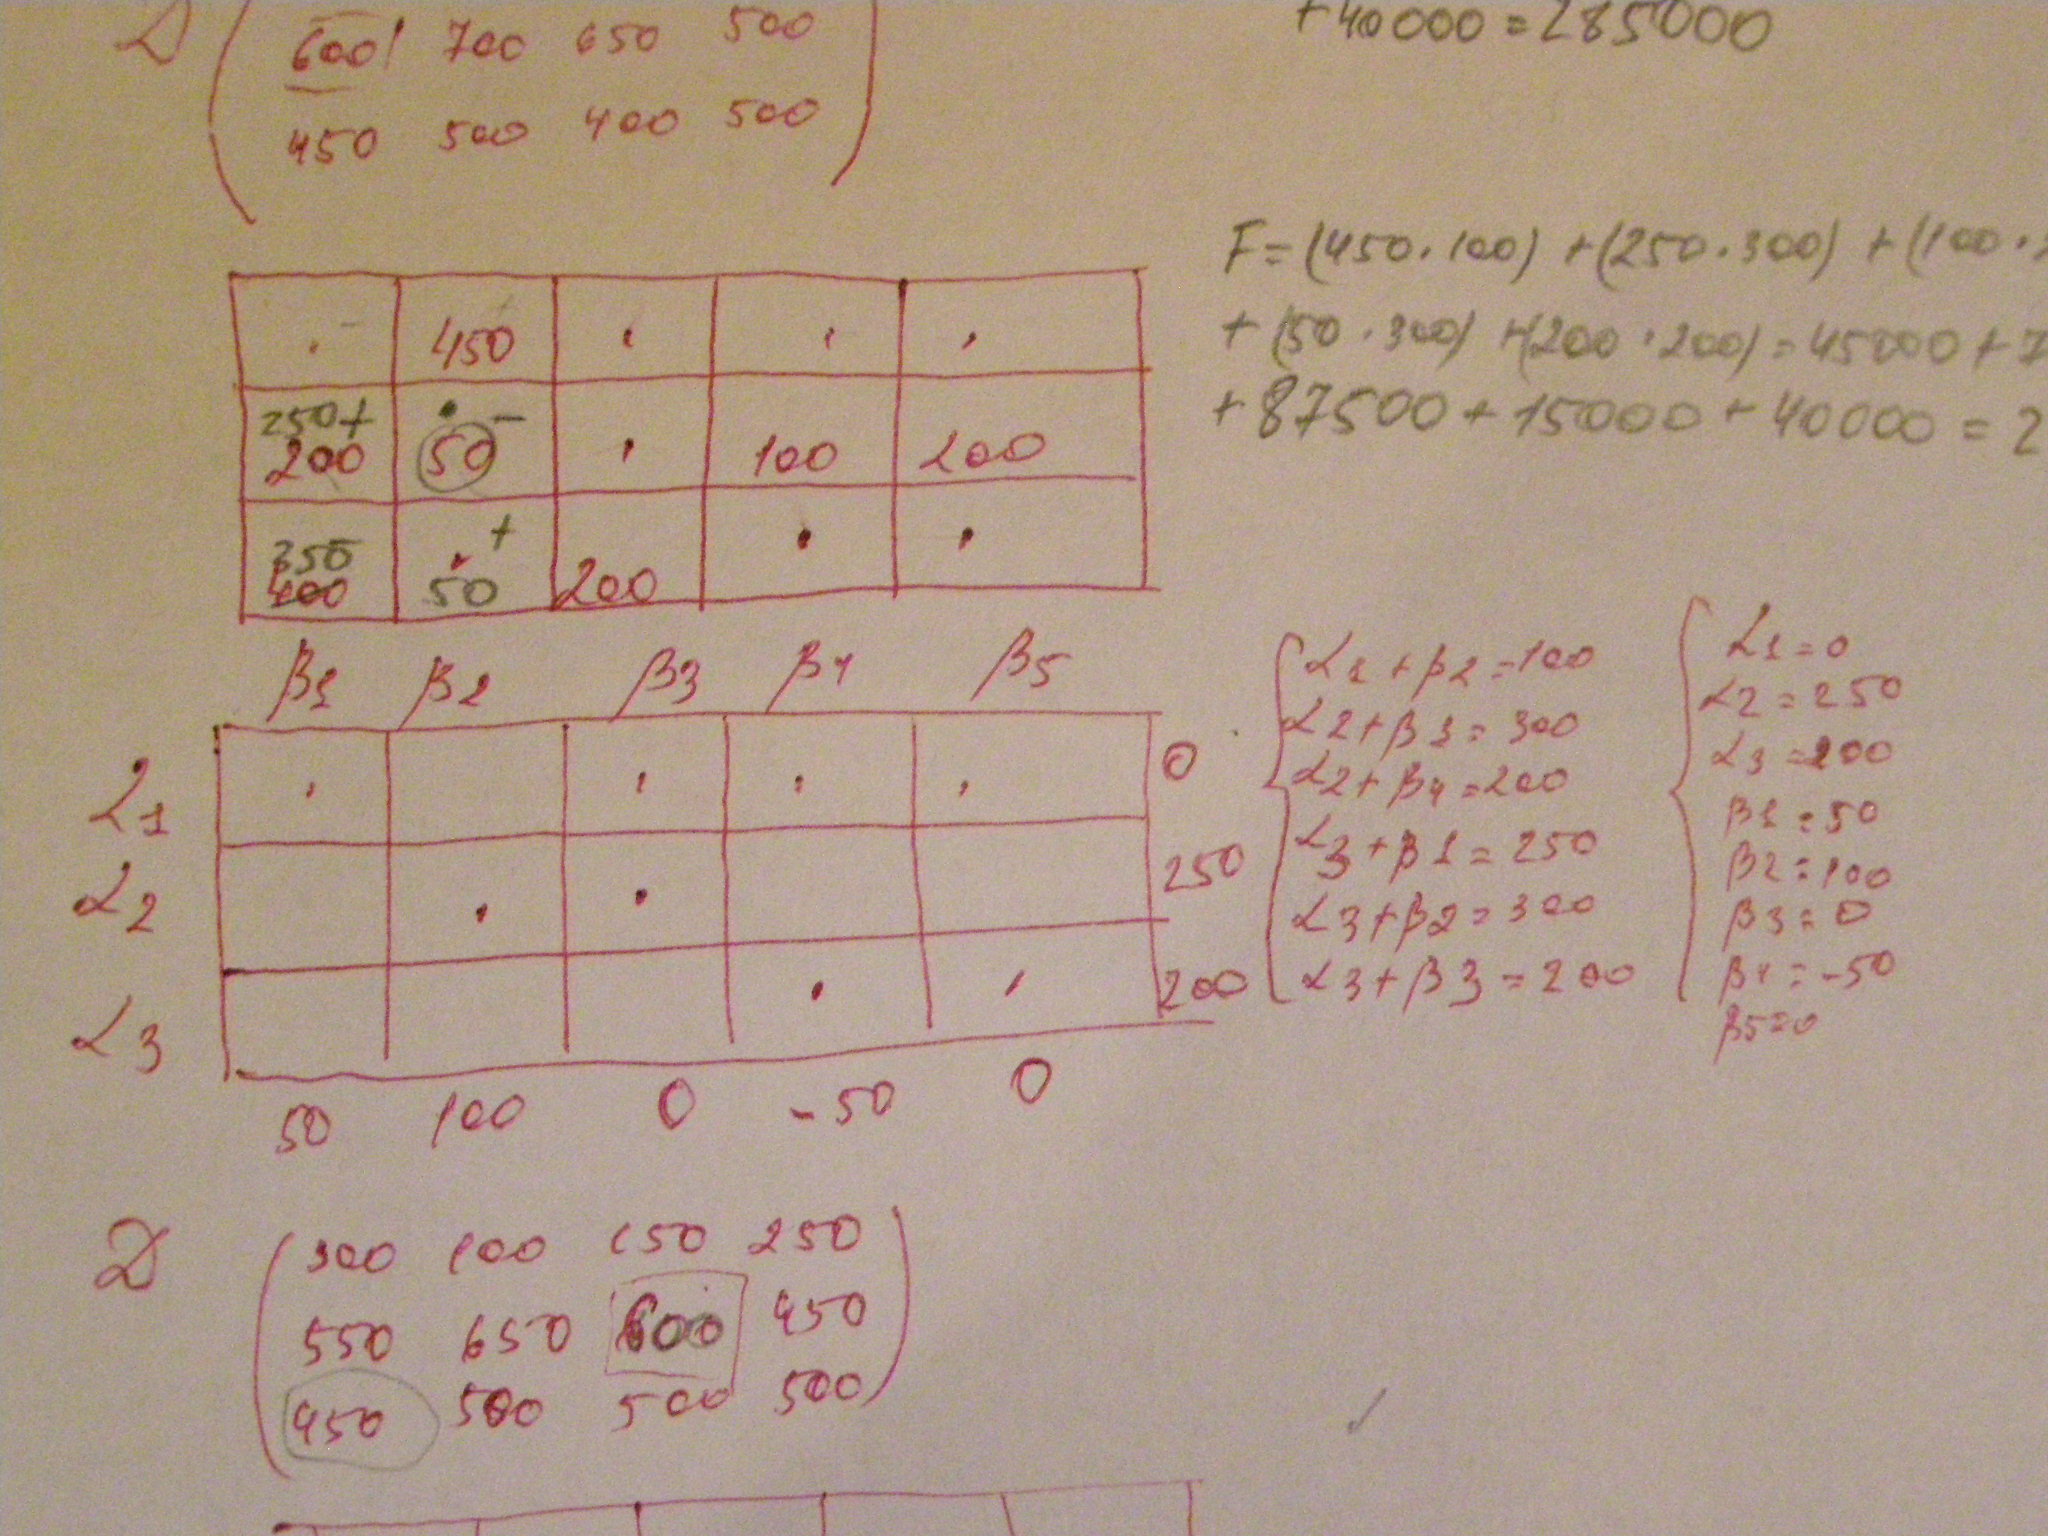 D
600 700 650 500
450 500 400 500
+40000=285000
F=(450·100)+(250·300)+(100·
+(50·300)+(200·200)=45000+7
+87500+15000+40000=2
· - 450 · · ·
250+ · -
200 50 · 100 200
350 · + · ·
400 50 200
β1 β2 β3 β4 β5
α1 0
α2 250
α3 200
50 100 0 -50 0
α1+β2=100
α2+β1=300
α2+β4=200
α3+β1=250
α3+β2=300
α3+β3=200
α1=0
α2=250
α3=200
β1=50
β2=100
β3=0
β4=-50
β5=0
D
300 100 150 250
550 650 600 450
450 500 500 500